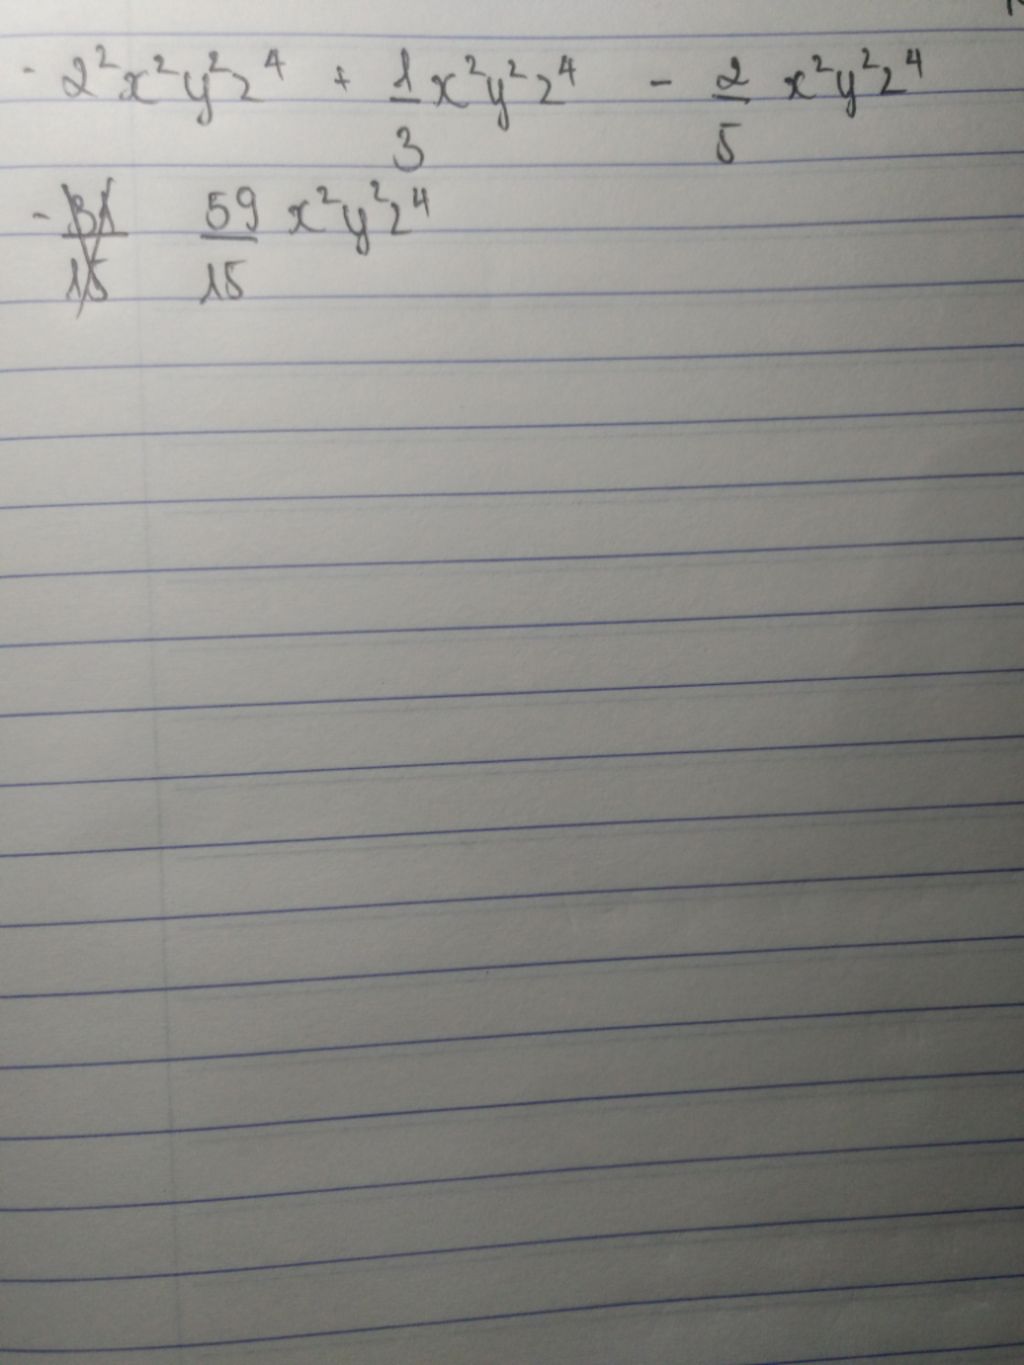 - 2²x²y²z⁴ + 1/3 x²y²z⁴ - 2/5 x²y²z⁴
- 31/15 59/15 x²y²z⁴